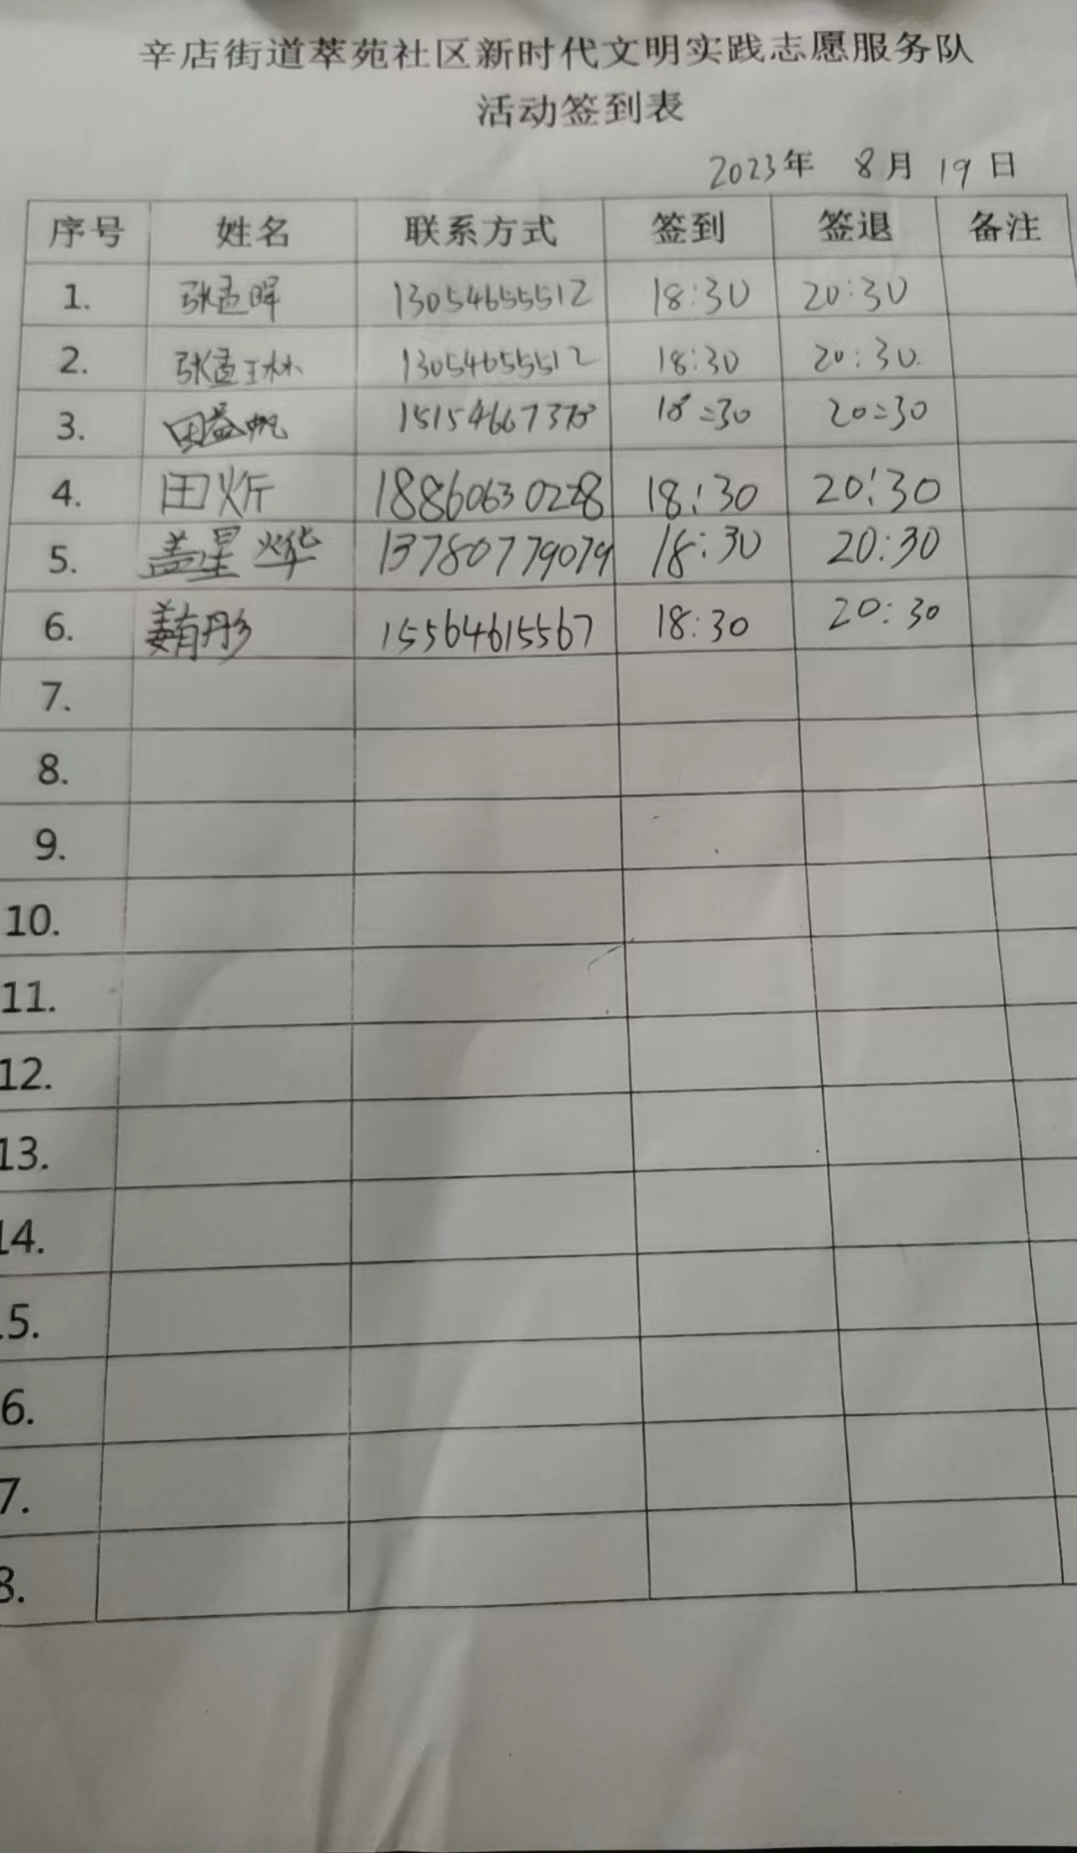 辛店街道萃苑社区新时代文明实践志愿服务队
活动签到表
2023年 8月 19日
序号 姓名 联系方式 签到 签退 备注
1. 张孟晖 13054655512 18:30 20:30
2. 张孟琳 13054655512 18:30 20:30
3. 田益帆 15154667378 18:30 20:30
4. 田炘 18860630228 18:30 20:30
5. 盖星烨 13780779079 18:30 20:30
6. 姜有彤 15564615567 18:30 20:30
7.
8.
9.
10.
11.
12.
13.
14.
5.
6.
7.
8.